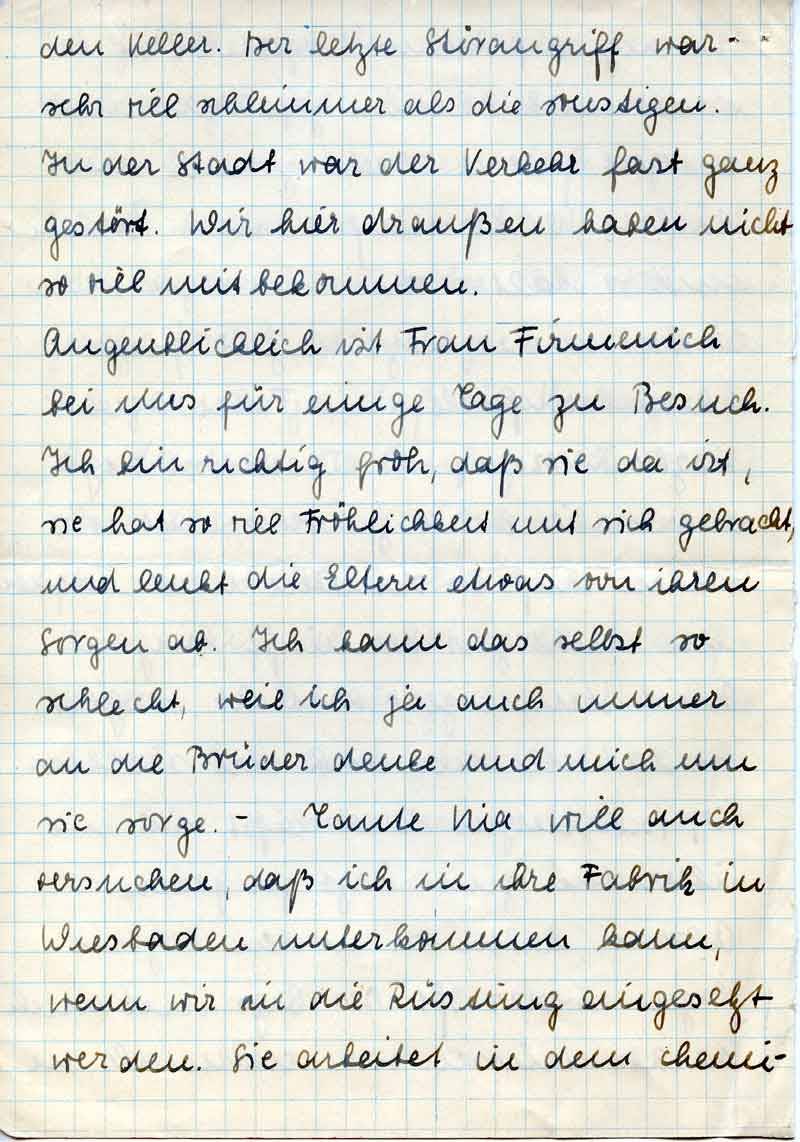 den Keller. Der letzte Störangriff war -
sehr viel schlimmer als die sonstigen.
In der Stadt war der Verkehr fast ganz
gestört. Wir hier draußen haben nicht
so viel mitbekommen.
Augenblicklich ist Frau Firmenich
bei uns für einige Tage zu Besuch.
Ich bin richtig froh, daß sie da ist,
sie hat so viel Fröhlichkeit mit sich gebracht,
und lenkt die Eltern etwas von ihren
Sorgen ab. Ich kann das selbst so
schlecht, weil ich ja auch immer
an die Brüder denke und mich um
sie sorge. - Tante Mia will auch
versuchen, daß ich in ihre Fabrik in
Wiesbaden unterkommen kann,
wenn wir in die Rüstung eingesetzt
werden. Sie arbeitet in dem chemi-